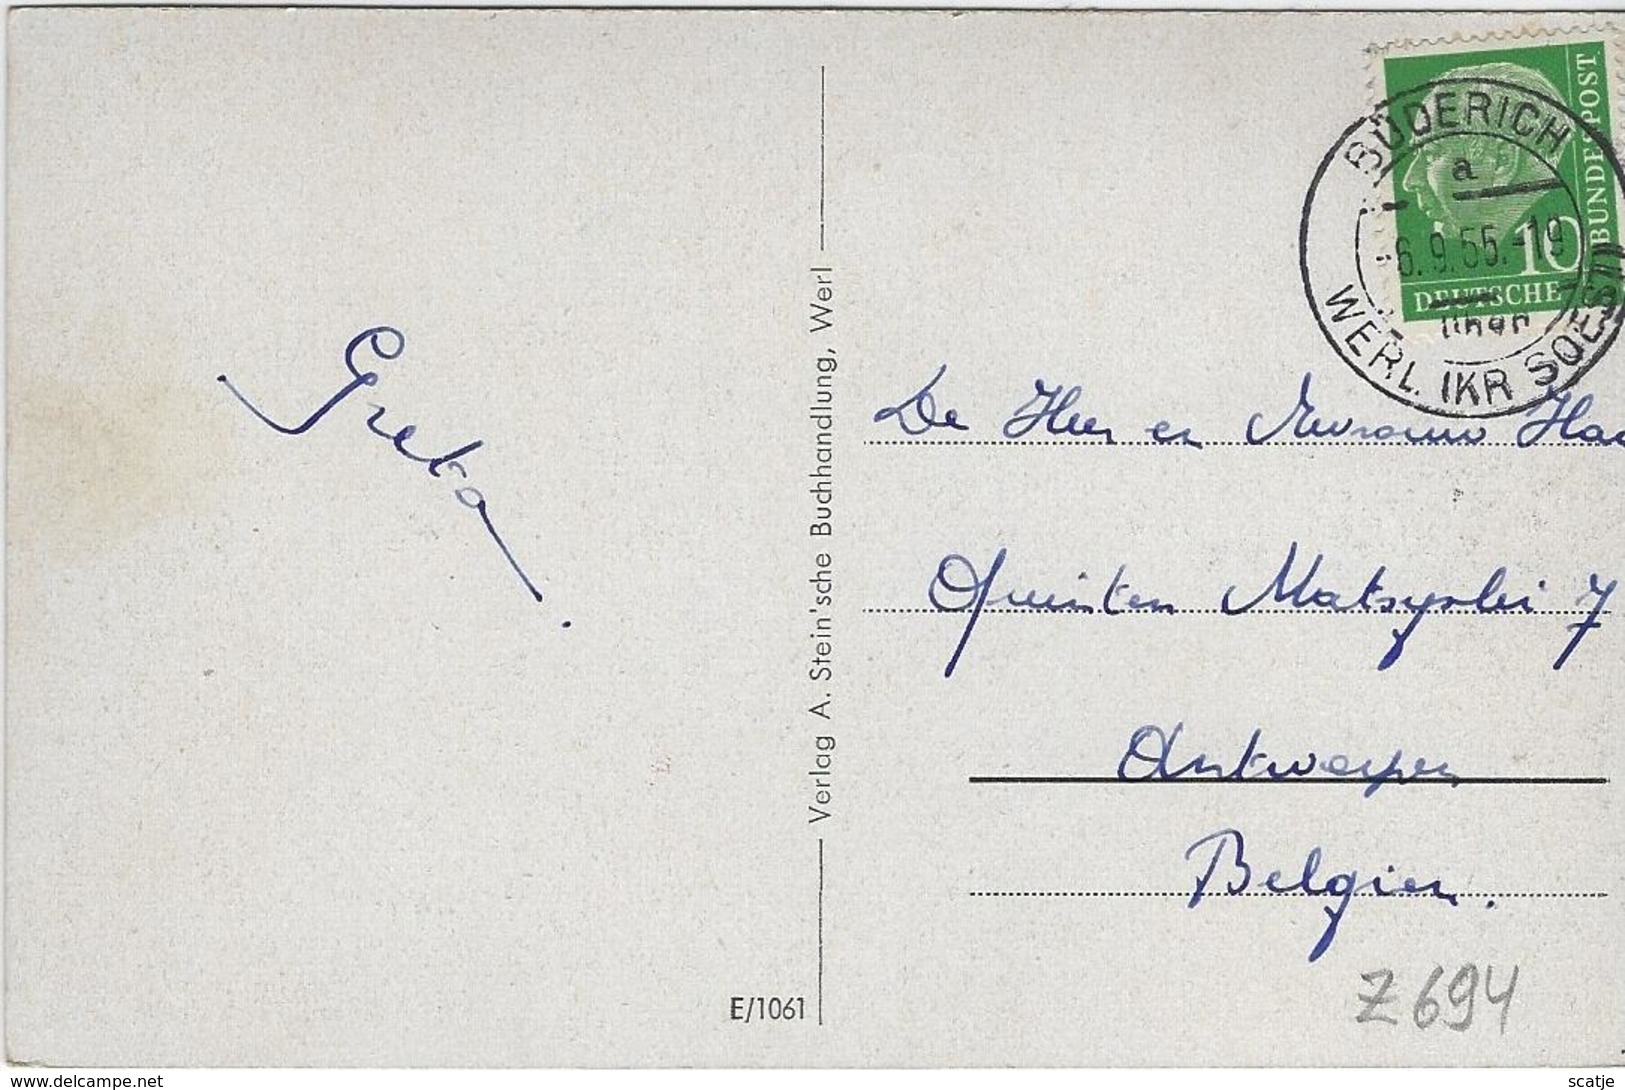 BÜDERICH
a
6.9.55.-19
WERL (KR SOEST)
10
DEUTSCHE
BUNDESPOST
Greta.
Verlag A. Stein'sche Buchhandlung, Werl
E/1061
De Heer en Mevrouw
Quinten Matsyslei 7
Antwerpen
Belgien.
Z 694
www.delcampe.net
scatje